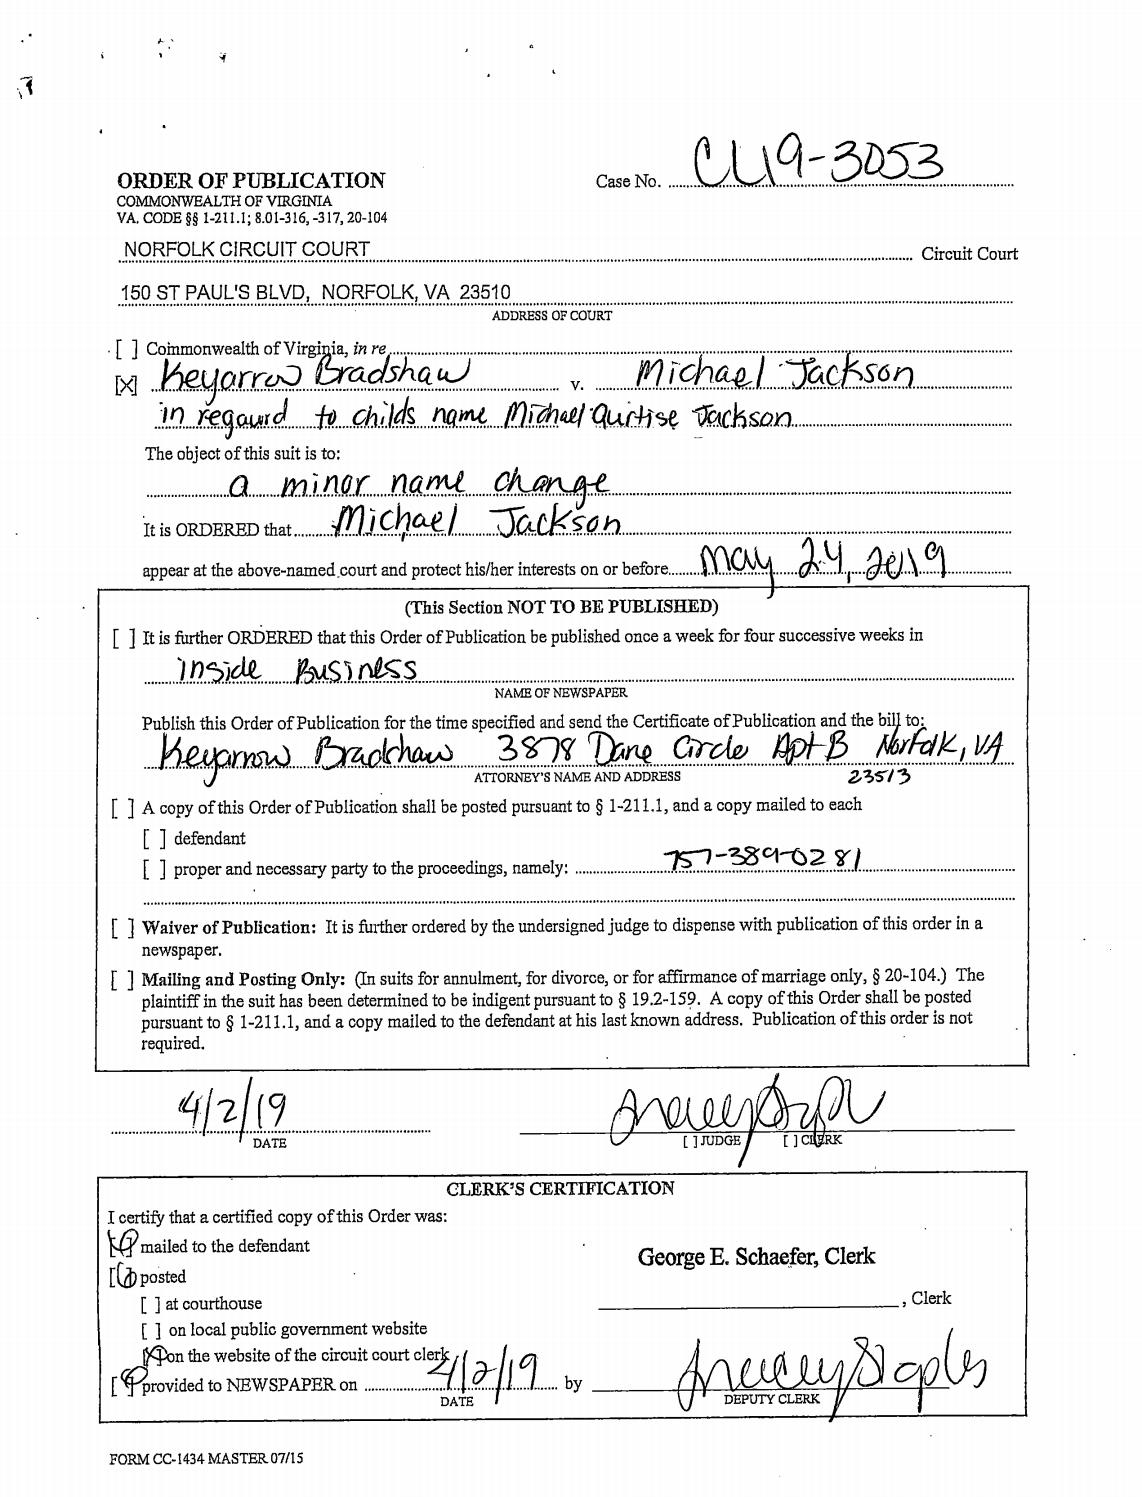 CL19-3053
ORDER OF PUBLICATION
Case No.
COMMONWEALTH OF VIRGINIA
VA. CODE §§ 1-211.1; 8.01-316, -317, 20-104
NORFOLK CIRCUIT COURT Circuit Court
150 ST PAUL'S BLVD, NORFOLK, VA 23510
ADDRESS OF COURT
[ ] Commonwealth of Virginia, in re
[X] Keyarrow Bradshaw v. Michael Jackson
in regaurd to childs name Michael Qurtise Jackson
The object of this suit is to:
a minor name change
It is ORDERED that Michael Jackson
appear at the above-named court and protect his/her interests on or before May 24, 2019
(This Section NOT TO BE PUBLISHED)
[ ] It is further ORDERED that this Order of Publication be published once a week for four successive weeks in
Inside Business
NAME OF NEWSPAPER
Publish this Order of Publication for the time specified and send the Certificate of Publication and the bill to:
Keyarrow Bradshaw 3878 Dane Circle Apt B Norfolk, VA
ATTORNEY'S NAME AND ADDRESS 23513
[ ] A copy of this Order of Publication shall be posted pursuant to § 1-211.1, and a copy mailed to each
[ ] defendant
[ ] proper and necessary party to the proceedings, namely: 757-389-0281
[ ] Waiver of Publication: It is further ordered by the undersigned judge to dispense with publication of this order in a
newspaper.
[ ] Mailing and Posting Only: (In suits for annulment, for divorce, or for affirmance of marriage only, § 20-104.) The
plaintiff in the suit has been determined to be indigent pursuant to § 19.2-159. A copy of this Order shall be posted
pursuant to § 1-211.1, and a copy mailed to the defendant at his last known address. Publication of this order is not
required.
4/2/19
DATE [ ] JUDGE [ ] CLERK
CLERK'S CERTIFICATION
I certify that a certified copy of this Order was:
mailed to the defendant
George E. Schaefer, Clerk
posted
[ ] at courthouse , Clerk
[ ] on local public government website
on the website of the circuit court clerk
provided to NEWSPAPER on 4/2/19 by
DATE DEPUTY CLERK
FORM CC-1434 MASTER 07/15